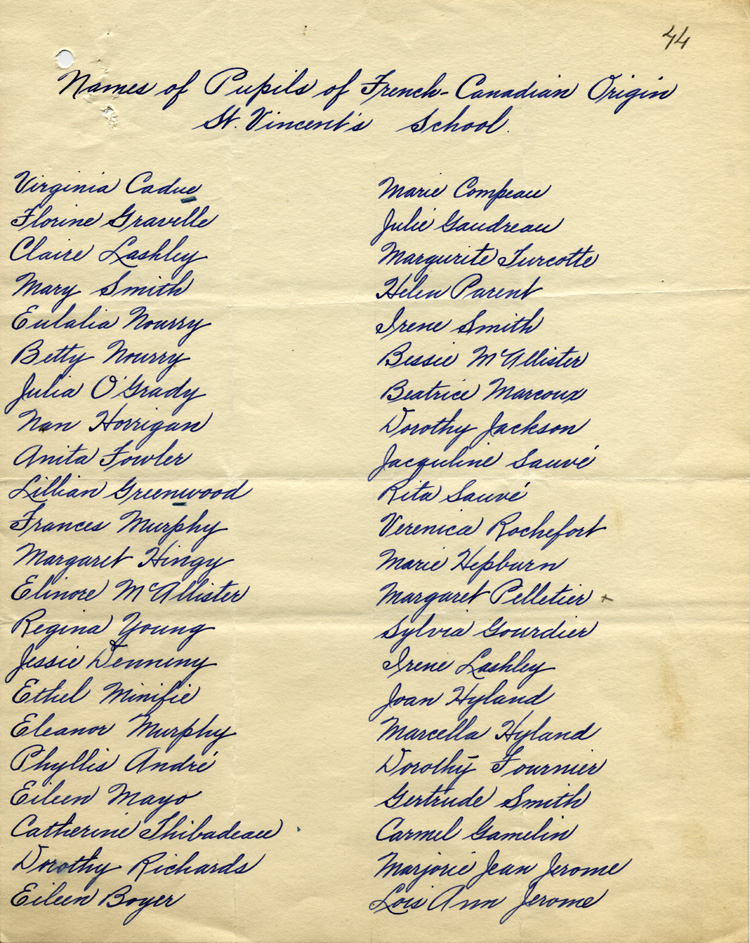 44
Names of Pupils of French-Canadian Origin
St. Vincent's School.
Virginia Cadue
Florine Gravelle
Claire Lashley
Mary Smith
Eulalia Nourry
Betty Nourry
Julia O'Grady
Nan Horrigan
Anita Fowler
Lillian Greenwood
Frances Murphy
Margaret Hingy
Elinore McAllister
Regina Young
Jessie Denniny
Ethel Minifie
Eleanor Murphy
Phyllis André
Eileen Mayo
Catherine Thibadeau
Dorothy Richards
Eileen Boyer
Marie Compeau
Julie Gaudreau
Margurite Turcotte
Helen Parent
Irene Smith
Bessie McAllister
Beatrice Marcoux
Dorothy Jackson
Jacquline Sauvé
Rita Sauvé
Verenica Rochefort
Marie Hepburn
Margaret Pelletier +
Sylvia Gourdier
Irene Lashley
Joan Hyland
Marcella Hyland
Dorothy Fournier
Gertrude Smith
Carmel Gamelin
Marjorie Jean Jerome
Lois Ann Jerome